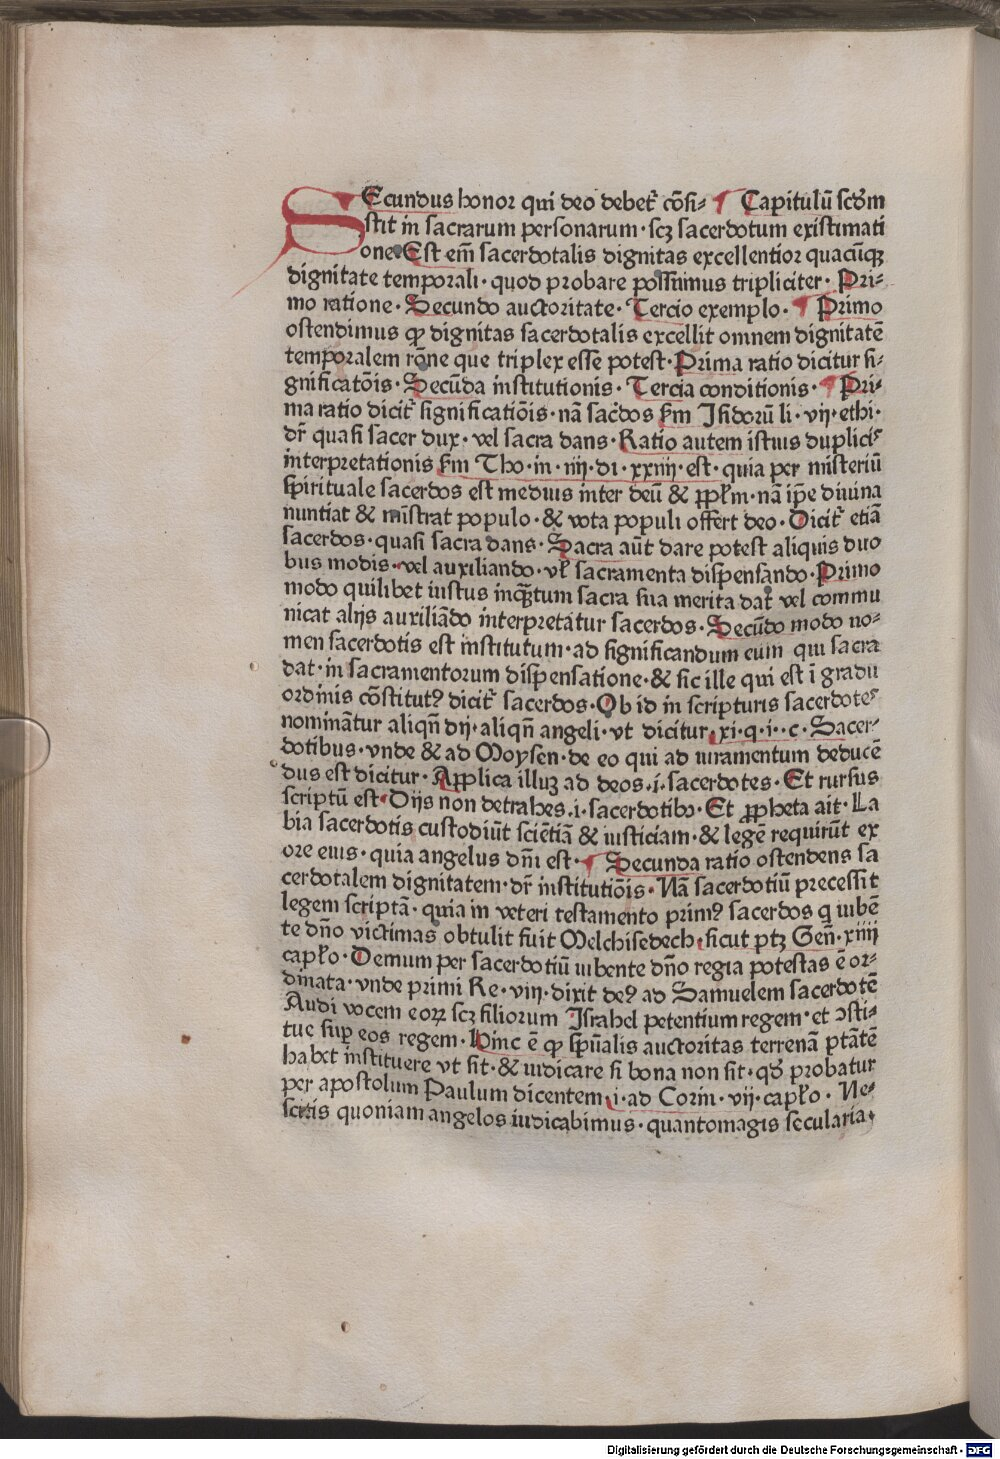 SEcundus honor qui deo debet᷑ cõsi⸗ ¶ Capitulũ scdm
stit in sacrarum personarum · scꝫ sacerdotum existimati
one · Est em̃ sacerdotalis dignitas excellentior quacũqꝫ
dignitate temporali · quod probare possumus tripliciter · Pri⸗
mo ratione · Secundo auctoritate · Tercio exemplo · ¶ Primo
ostendimus ꝙ dignitas sacerdotalis excellit omnem dignitatẽ
temporalem rõne que triplex esse potest · Prima ratio dicitur si⸗
gnificatõis · Secũda institutionis · Tercia conditionis · ¶ Pri⸗
ma ratio dicit᷑ significatiõis · nã sac̃dos ẜm Isidorũ li · vij · ethi ·
dr̃ quasi sacer dux · vel sacra dans · Ratio autem istius duplicis
interpretationis ẜm Tho · in · iiij · di · xxiiij · est · quia per misteriũ
spirituale sacerdos est medius inter deũ & ꝓpłm · nã ip̃e diuina
nuntiat & mĩstrat populo · & vota populi offert deo · Dicit᷑ etiã
sacerdos · quasi sacra dans · Sacra aũt dare potest aliquis duo
bus modis · vel auxiliando · vł sacramenta dispensando · Primo
modo quilibet iustus inqꝫtum sacra sua merita dat vel commu
nicat alijs auxiliãdo interpretatur sacerdos · Secũdo modo no⸗
men sacerdotis est institutum · ad significandum eum qui sacra
dat · in sacramentorum dispensatione · & sic ille qui est ĩ gradu
ordinis cõstitutꝰ dicit᷑ sacerdos · Ob id in scripturis sacerdotes
nominãtur aliqñ dij · aliqñ angeli · vt dicitur · xi · q · i · c · Sacer⸗
dotibus · vnde & ad Moysen · de eo qui ad iuramentum deducẽ
dus est dicitur · Applica illuꝫ ad deos · i · sacerdotes · Et rursus
scriptũ est · Dijs non detrahes · i · sacerdotibꝰ · Et ꝓpheta ait · La
bia sacerdotis custodiũt sciẽtiã & iusticiam · & legẽ requirũt ex
ore eius · quia angelus dñi est · ¶ Secunda ratio ostendens sa
cerdotalem dignitatem · dr̃ institutiõis · Nã sacerdotiũ precessit
legem scriptã · quia in veteri testamento primꝰ sacerdos q iubẽ
te dño victimas obtulit fuit Melchisedech · sicut ptꝫ Geñ · xiiij
capło · Demum per sacerdotiũ iubente dño regia potestas ẽ or⸗
dinata · vnde primi Re · viij · dixit deꝰ ad Samuelem sacerdotẽ
Audi vocem eoꝝ scꝫ filiorum Israhel petentium regem · et ↄsti⸗
tue suꝑ eos regem · Hinc ẽ ꝙ spũalis auctoritas terrenã ptãtẽ
habet instituere vt sit · & iudicare si bona non sit · qđ probatur
per apostolum Paulum dicentem · i · ad Corin · vij · capło · Ne⸗
scitis quoniam angelos iudicabimus · quantomagis secularia ·
Digitalisierung gefördert durch die Deutsche Forschungsgemeinschaft - DFG